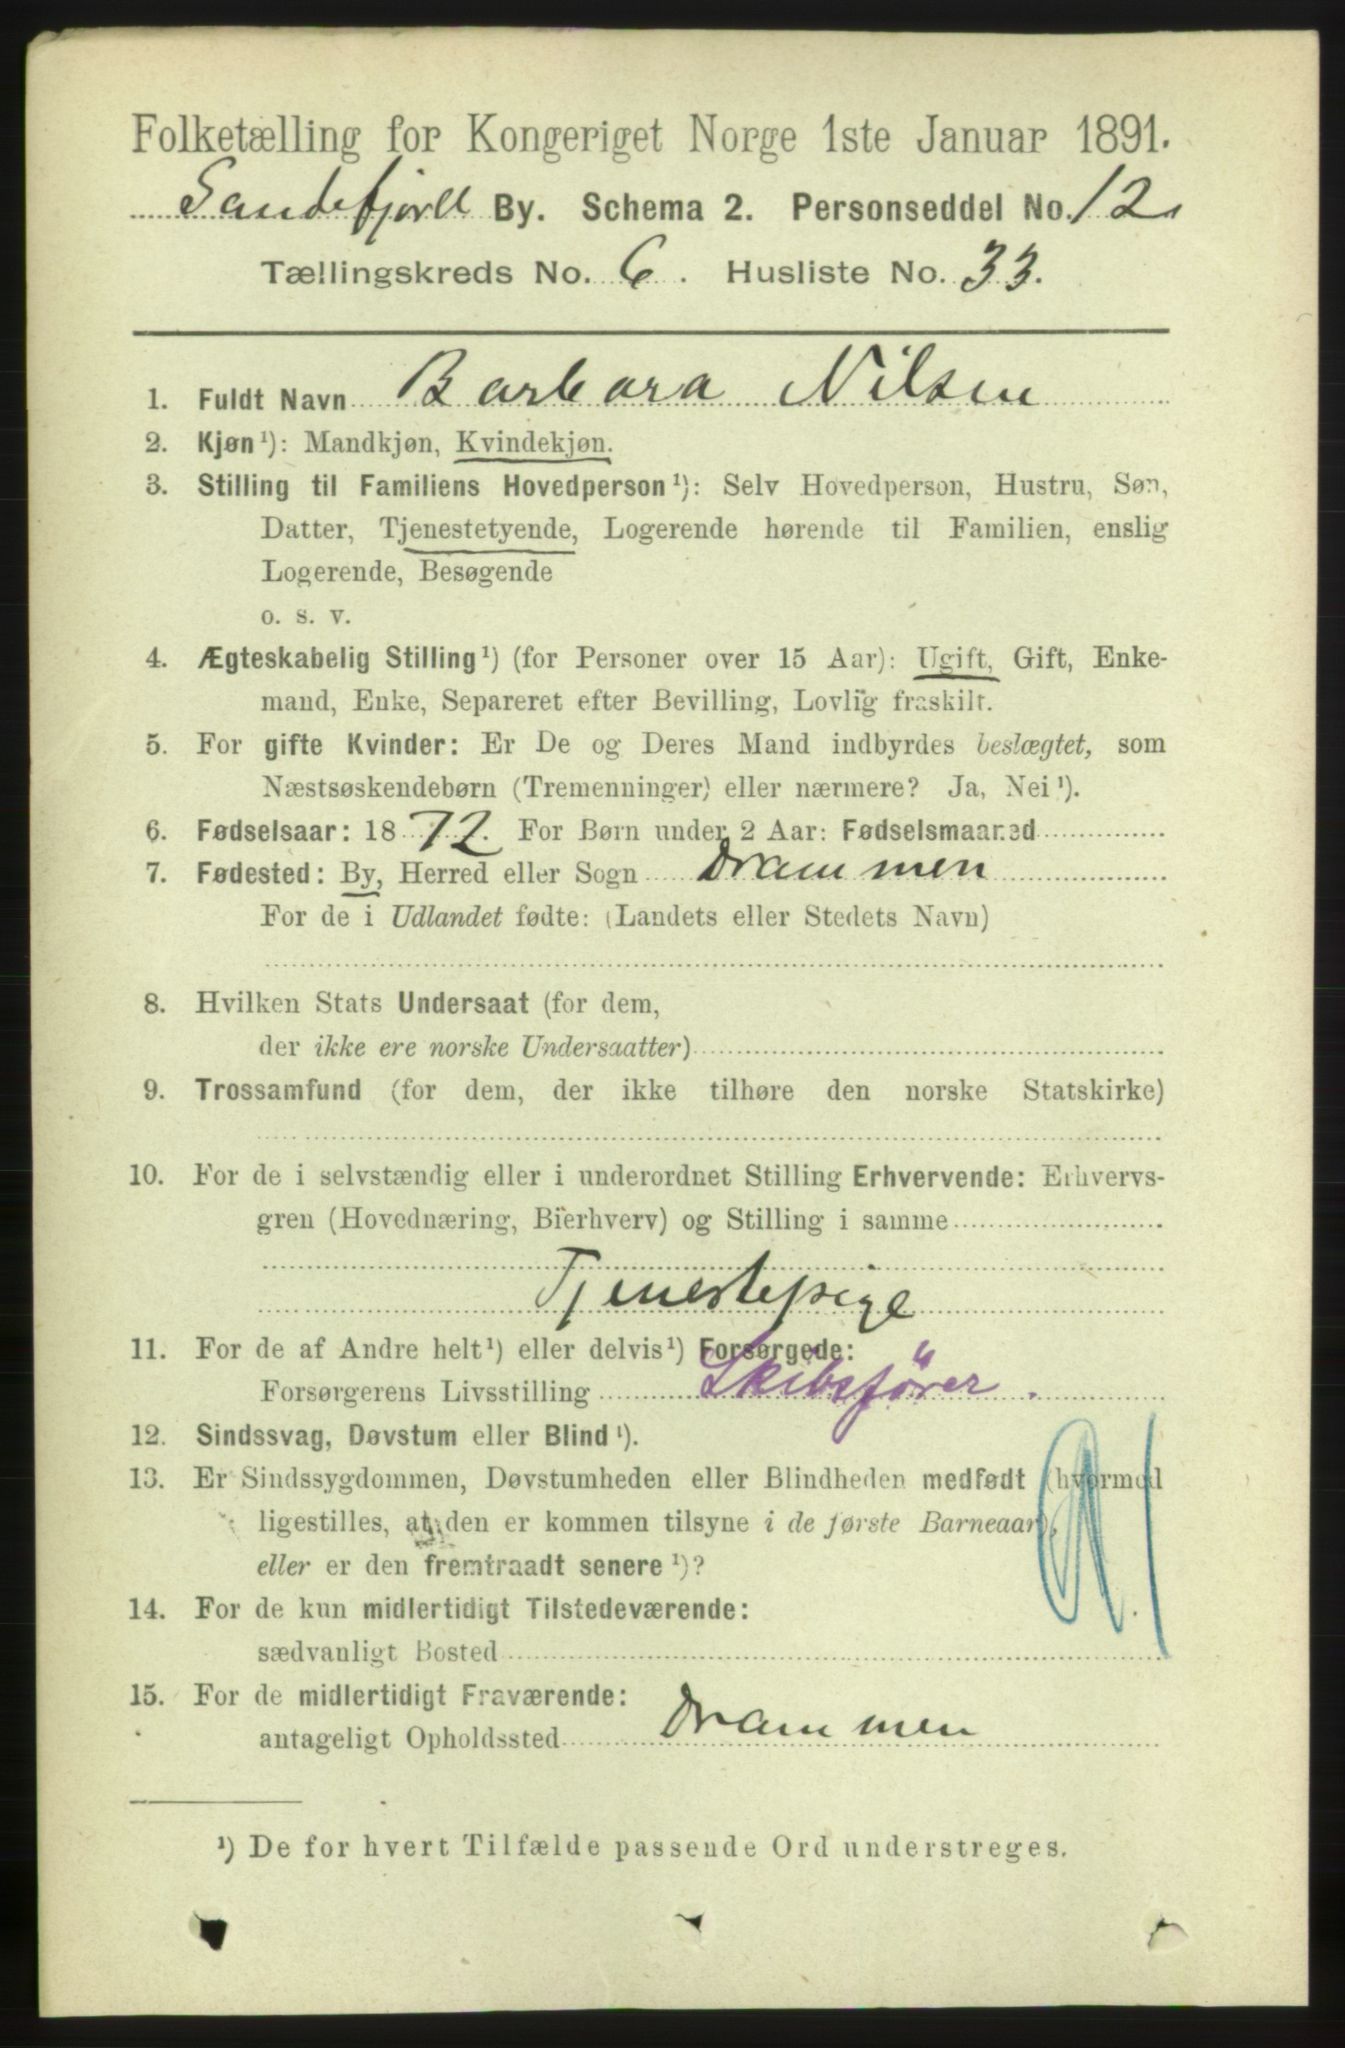 Folketælling for Kongeriget Norge 1ste Januar 1891.
Sandefjord By. Schema 2. Personseddel No. 12
Tællingskreds No. 6. Husliste No. 33.
1. Fuldt Navn Barbara Nilsen
2. Kjøn¹): Mandkjøn, Kvindekjøn.
3. Stilling til Familiens Hovedperson¹): Selv Hovedperson, Hustru, Søn,
Datter, Tjenestetyende, Logerende hørende til Familien, enslig
Logerende, Besøgende
o. s. v.
4. Ægteskabelig Stilling¹) (for Personer over 15 Aar): Ugift, Gift, Enke-
mand, Enke, Separeret efter Bevilling, Lovlig fraskilt.
5. For gifte Kvinder: Er De og Deres Mand indbyrdes beslægtet, som
Næstsøskendebørn (Tremenninger) eller nærmere? Ja, Nei¹).
6. Fødselsaar: 1872. For Børn under 2 Aar: Fødselsmaaned
7. Fødested: By, Herred eller Sogn Drammen
For de i Udlandet fødte: (Landets eller Stedets Navn)
8. Hvilken Stats Undersaat (for dem,
der ikke ere norske Undersaatter)
9. Trossamfund (for dem, der ikke tilhøre den norske Statskirke)
10. For de i selvstændig eller i underordnet Stilling Erhvervende: Erhvervs-
gren (Hovednæring, Bierhverv) og Stilling i samme
Tjenestepige
11. For de af Andre helt¹) eller delvis¹) Forsørgede:
Forsørgerens Livsstilling Skibsfører.
12. Sindssvag, Døvstum eller Blind¹).
13. Er Sindssygdommen, Døvstumheden eller Blindheden medfødt (hvormed
ligestilles, at den er kommen tilsyne i de første Barneaar),
eller er den fremtraadt senere¹)?
14. For de kun midlertidigt Tilstedeværende:
sædvanligt Bosted
15. For de midlertidigt Fraværende:
antageligt Opholdssted Drammen
¹) De for hvert Tilfælde passende Ord understreges.